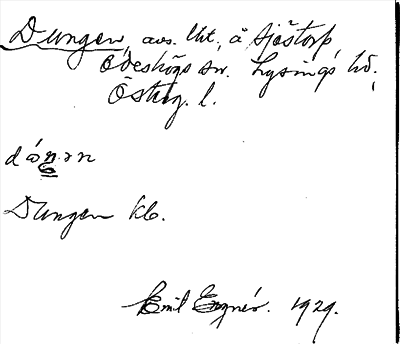 Dungen, avs. lht, å Sjöstorp,
Ödeshögs sn. Lysings hd.,
Östug. l.
Dungen kb.
Emil Engnér. 1929.